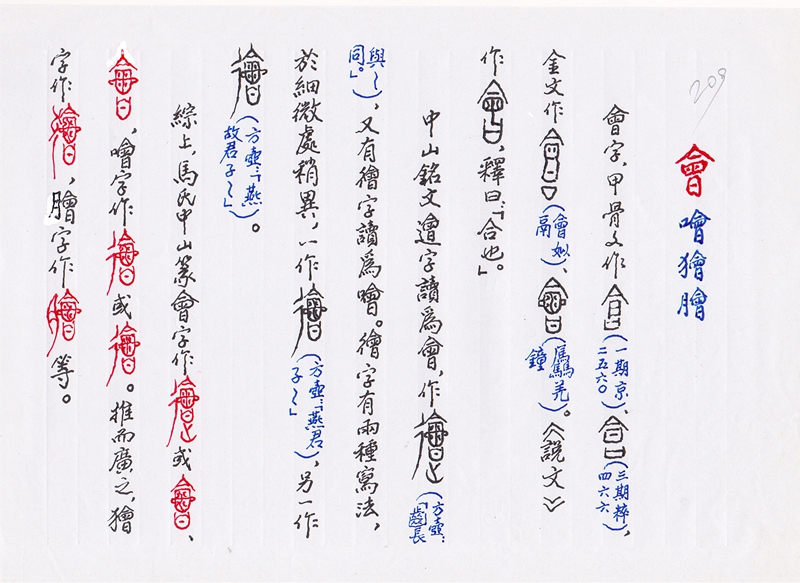 209
會 噲 獪 膾
會字，甲骨文作（一期京二五六〇）、（三期粹四六六），
金文作（會姒鬲）、（𠪚羌鐘）。《說文》
作，釋曰：「合也。」
中山銘文遣字讀為會，作（方壺：「齒長
與～同。」），又有繪字讀爲噲。繪字有兩種寫法，
於細微處稍異，一作（方壺：「燕君子～」），另一作
（方壺：「燕故君子～」）。
綜上，馬氏中山篆會字作或、
，噲字作或。推而廣之，獪
字作，膾字作等。